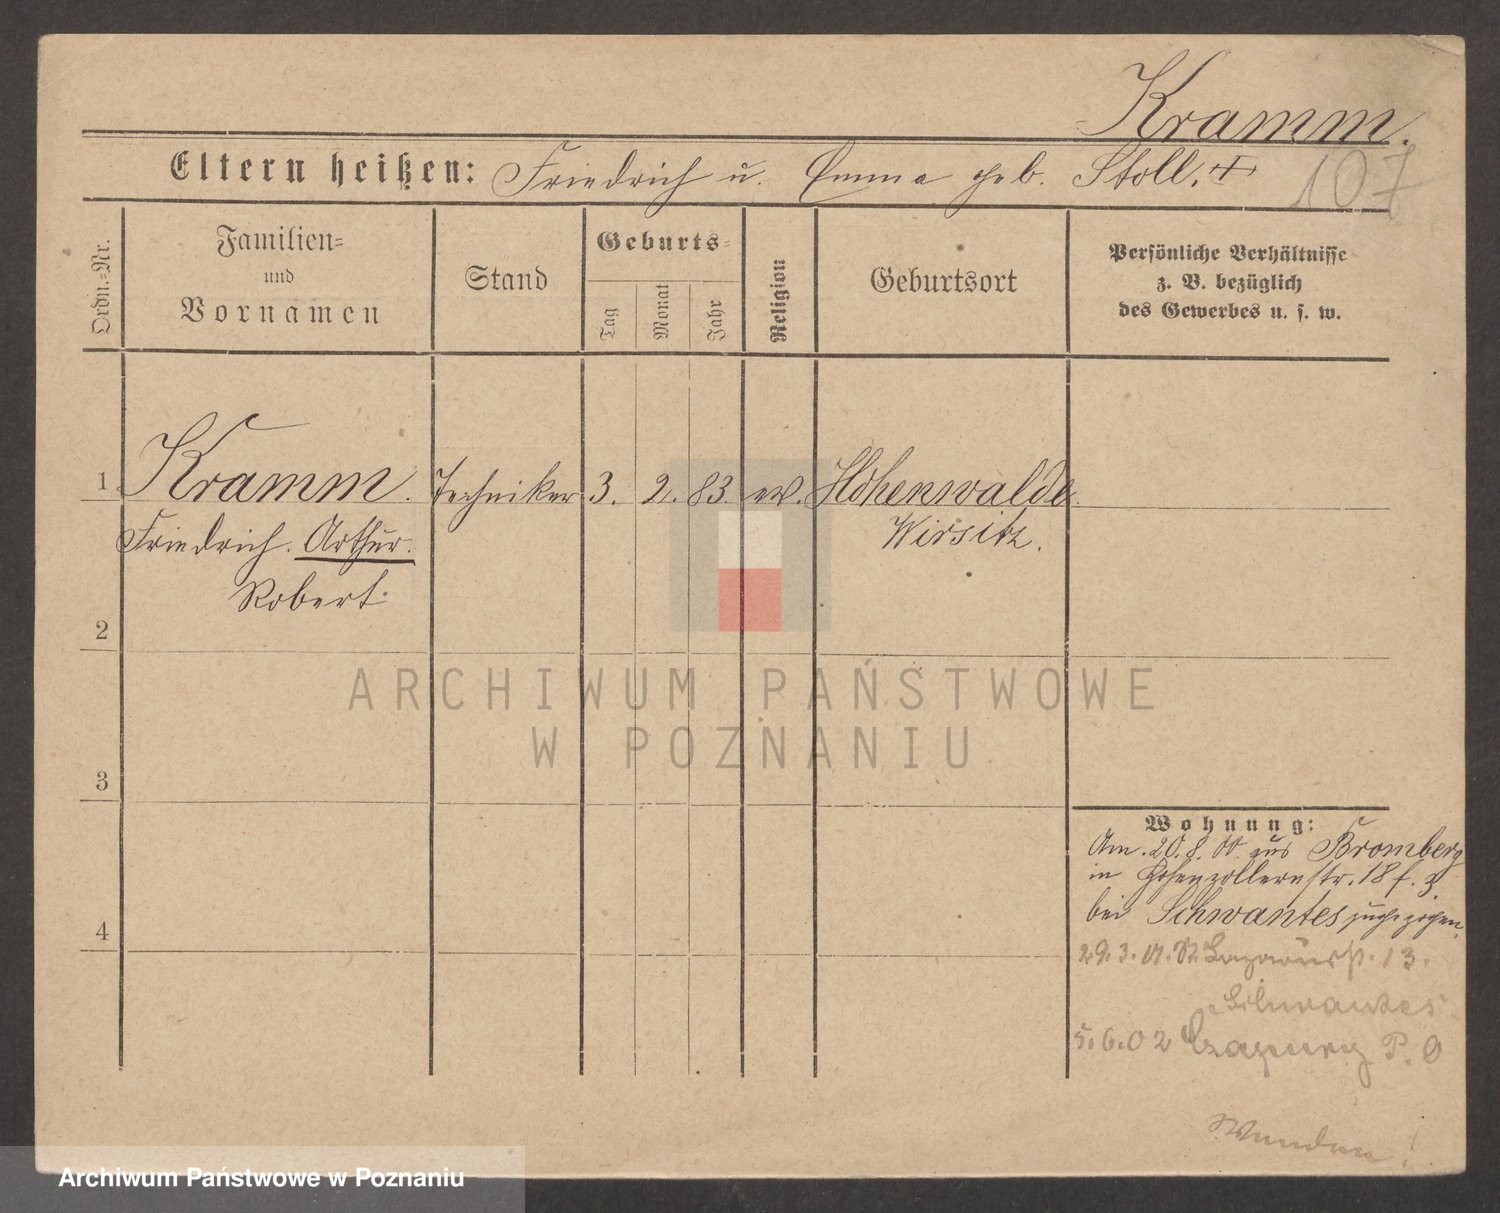 Kramm.
Eltern heißen: Friedrich u. Emma geb. Stoll. +
107
Ordn.=Nr.
Familien=
und
Vornamen
Stand
Geburts=
Tag
Monat
Jahr
Religion
Geburtsort
Persönliche Verhältnisse
z. B. bezüglich
des Gewerbes u. s. w.
1 Kramm. Techniker 3. 2. 83. ev. Hohenwalde
Friedrich. Arthur. Wirsitz.
Robert
2
3
4
Wohnung:
Am 20. 8. 00. aus Bromberg
in Hohenzollernstr. 18 f. z
bei Schwantes zugezogen.
29. 3. 01. St. Lazarusstr. 13.
Schwantes
5. 6. 02 P. O
Wenden!
ARCHIWUM PAŃSTWOWE
W POZNANIU
Archiwum Państwowe w Poznaniu